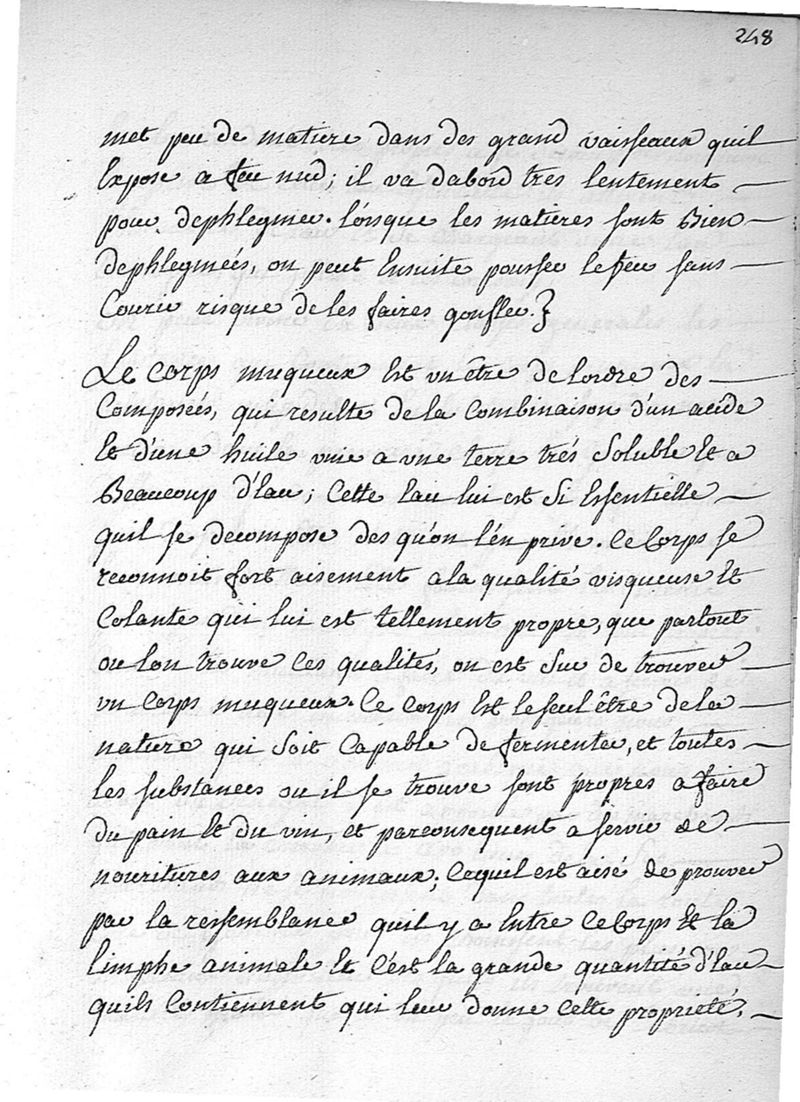 248
met peu de matiere dans des grand vaisseaux quil
Expose a feu nud; il va dabord tres lentement
pour dephlegmer. lorsque les matieres sont Bien
dephlegmeés, on peut Ensuite pousser le feu sans
Courir risque de les faires gonfler.
Le corps muqueux Est un être de lordre des
Composeés, qui resulte de la Combinaison d'un acide
Et d'une huile unie a une terre trés Soluble Et a
Beaucoup d'Eau; Cette Eau lui est Si Essentielle
quil se decompose des qu'on l'en prive. Ce Corps se
reconnoit fort aisement a la qualité visqueuse Et
Colante qui lui est tellement propre, que partout
ou lon trouve Ces qualités, on est Sur de trouver
un Corps muqueux. Ce Corps Est le seul être de la
nature qui Soit Capable de fermenter, et toutes
les substances ou il se trouve sont propres a faire
du pain Et du vin, et parconsequent a servir de
nouritures aux animaux; Cequil est aisé de prouver
par la ressemblance quil y a Entre Ce Corps Et la
limphe animale Et C'est la grande quantité d'Eau
quils Contiennent qui leur donne Cette proprieté,